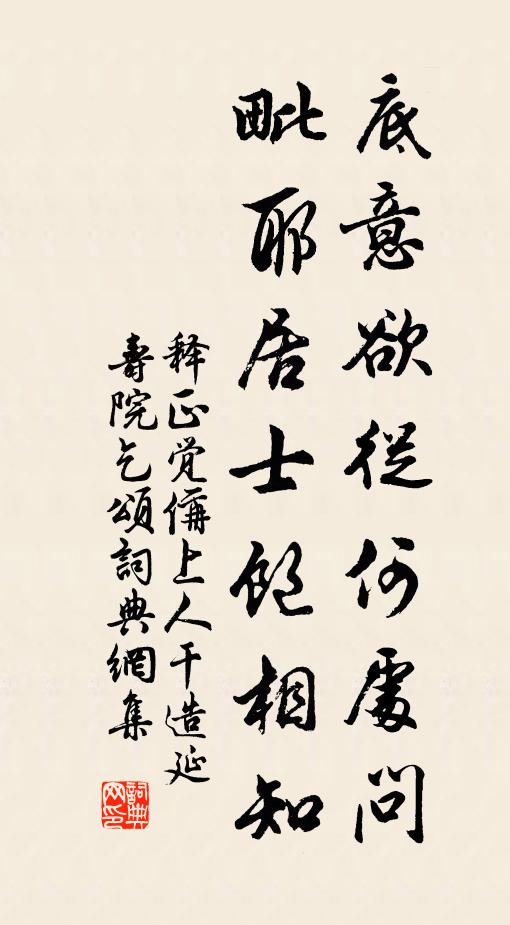 底意欲從何處問
毗耶居士飽相知
释正觉僑上人干造延
壽院乞頌詞典網集
詞典网印